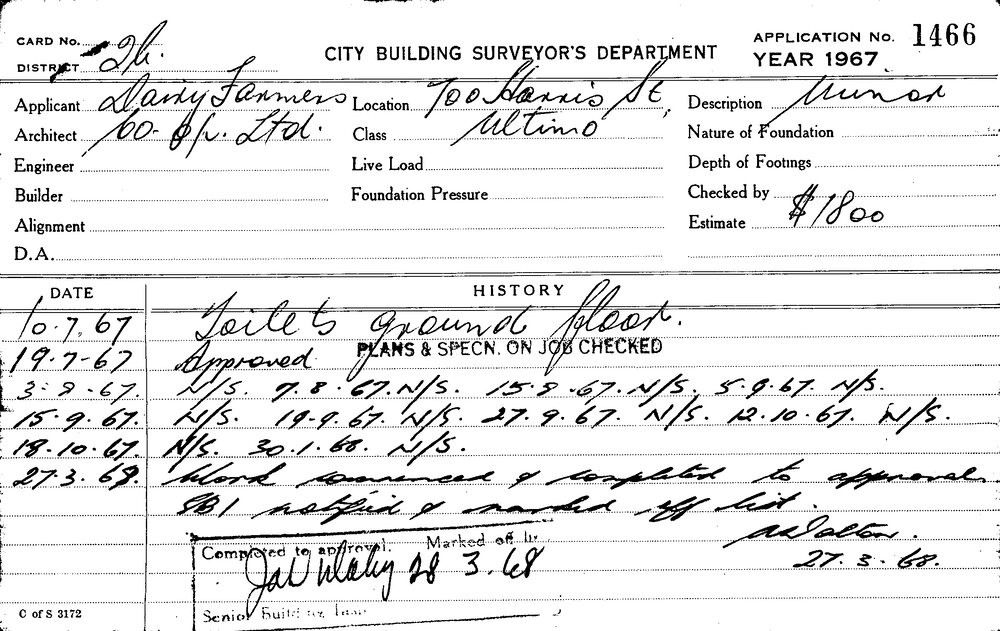 CARD No.
DISTRICT 2b.
CITY BUILDING SURVEYOR'S DEPARTMENT
APPLICATION No. 1466
YEAR 1967
Applicant Dairy Farmers Location 700 Harris St, Description Minor
Architect Co-op. Ltd. Class Ultimo Nature of Foundation
Engineer Live Load Depth of Footings
Builder Foundation Pressure Checked by
Alignment Estimate $1800
D.A.
DATE HISTORY
10.7.67 Toilets ground floor.
19-7-67 Approved PLANS & SPECN. ON JOB CHECKED
3-8-67. N/S. 7.8.67. N/S. 15.8.67. N/S. 5.9.67. N/S.
15.9.67. N/S. 19.9.67. N/S. 27.9.67. N/S. 12.10.67. N/S.
18.10.67. N/S. 30.1.68. N/S.
27.3.68. Work commenced & completed to approval
SBI notified & marked off list.
27.3.68.
Completed to approval. Marked off
28 3.68
Senior Building
C of S 3172